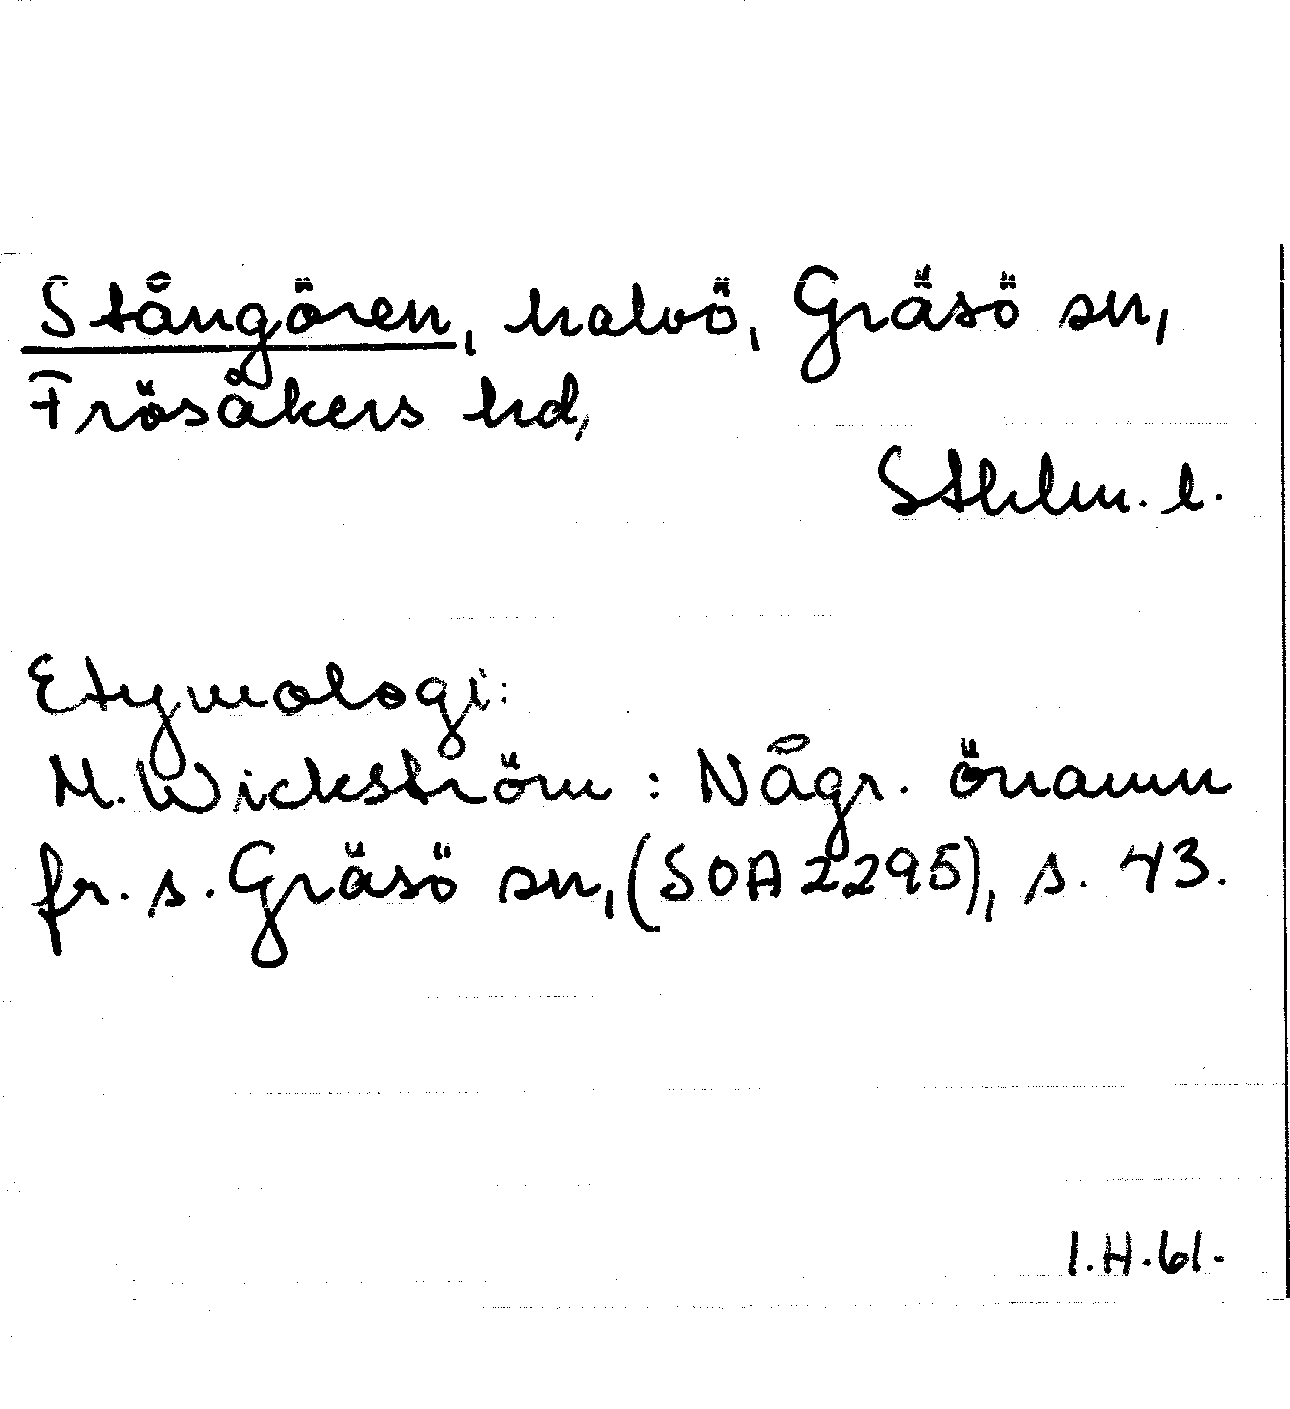 Stångören, halvö, Gräsö sn,
Frösåkers hd,
Sthlm. l.
Etymologi:
M. Wickström : Någr. önamn
fr. s. Gräsö sn, (SOA 2295), s. 43.
I.H.61.